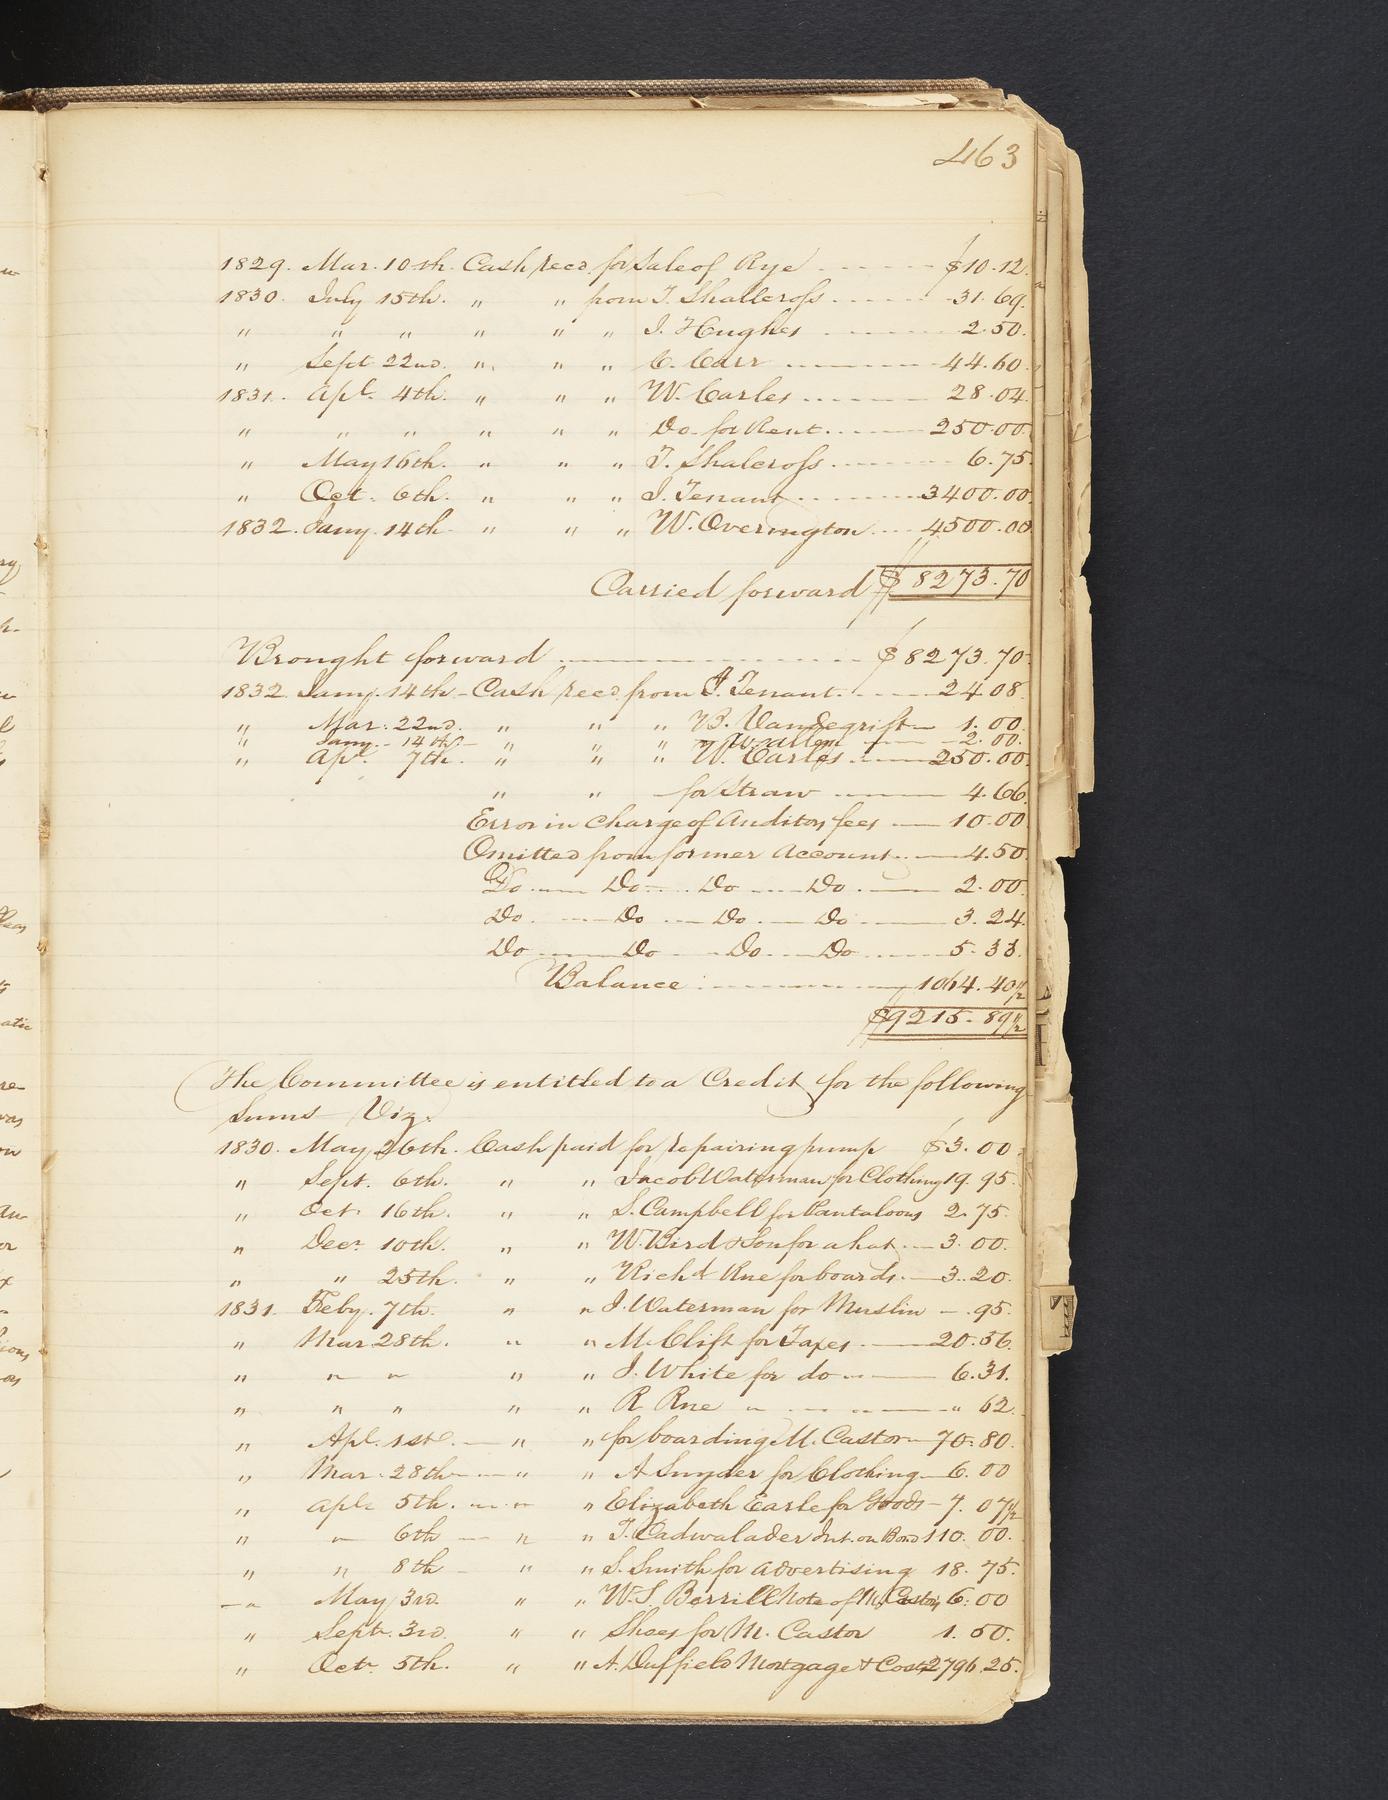 463
1829. Mar. 10th. Cash recd. for Sale of Rye $10.12.
1830. July 15th. " " from T. Shallcross 31.69.
" " " " " " J. Hughes 2.50.
" Sept 22nd. " " " C. Carr 44.60.
1831. Apl. 4th. " " " W. Carles 28.04.
" " " " " " Do. for Rent 250.00.
" May 16th. " " " T. Shalcross 6.75.
" Oct. 6th. " " " J. Tenant 3400.00.
1832. Jany. 14th " " " W. Overington 4500.00.
Carried forward $8273.70
Brought forward $8273.70.
1832 Jany. 14th - Cash recd. from J. Tenant. 24 08.
" Mar. 22nd. " " " B. Vandegrift 1.00.
" Jany. - 14th - " " " W. Allen 2.00.
" Apl. 7th. " " " W. Carles 250.00.
" " for Straw 4.66.
Error in Charge of Auditors fees 10.00
Omitted from former Account 4.50
Do Do Do Do 2.00.
Do. Do Do Do 3.24.
Do Do Do Do 5.33.
Balance 1064.40½
$9215.89½
The Committee is entitled to a Credit for the following
Sums Viz.
1830. May 26th. Cash paid for repairing pump $3.00.
" Sept. 6th. " " Jacob Waterman for Clothing 19.95.
" Oct. 16th. " " S. Campbell for Pantaloons 2.75.
" Decr. 10th. " " W. Bird & Son for a hat 3.00.
" " 25th. " " Richd. Rue for boards. 3.20.
1831. Feby. 7th. " " J. Waterman for Muslin .95.
" Mar 28th. " " M. Clift for Taxes 20.36.
" " " " " J. White for do 6.31.
" " " " " R Rue " " 62.
" Apl. 1st. " " for boarding M. Castor 70.80.
" Mar. 28th " " A Snyder for Clothing 6.00
" Apl. 5th. " " Elizabeth Earle for Goods 7.07½
" " 6th " " T. Cadwalader Int. on Bond 110.00.
" " 8th " " S. Smith for Advertising 18.75.
" May 3rd. " " W. S. Berrill Note of M. Castor 6.00
" Sept. 3rd. " " Shoes for M. Castor 1.50.
" Octr. 5th. " " A. Duffield Mortgage & Costs 2796.25.